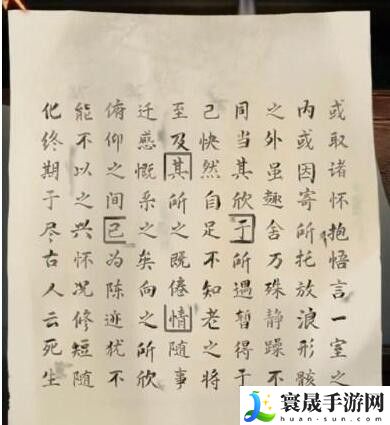 或取诸怀抱悟言一室之
内或因寄所托放浪形骸
之外虽趣舍万殊静躁不
同当其欣于所遇暂得于
己快然自足不知老之将
至及其所之既倦情随事
迁感慨系之矣向之所欣
俯仰之间已为陈迹犹不
能不以之兴怀况修短随
化终期于尽古人云死生
寰晟手游网
huan-sun.com